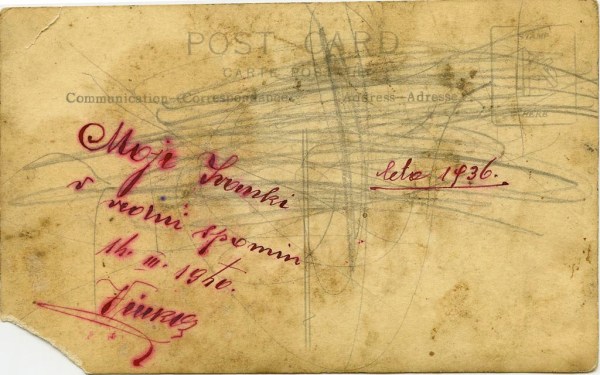 POST CARD
CARTE POSTALE
Communication—Correspondance Address—Adresse
STAMP
HERE
Moji Ivanki
v večni spomin
14. III. 1940.
leta 1936.